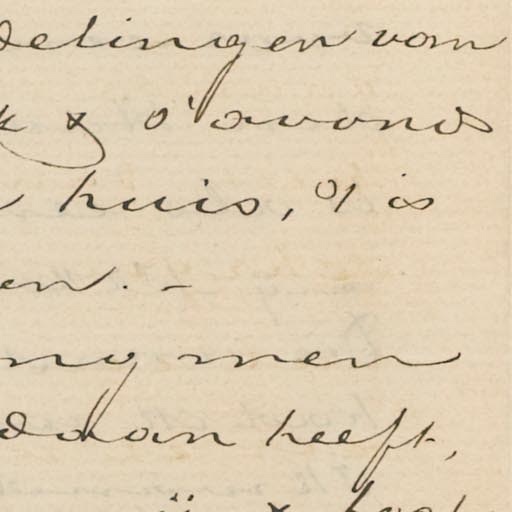 delingen vom
k & 's avonds
huis, of is
en. -
ng men
daan heeft,